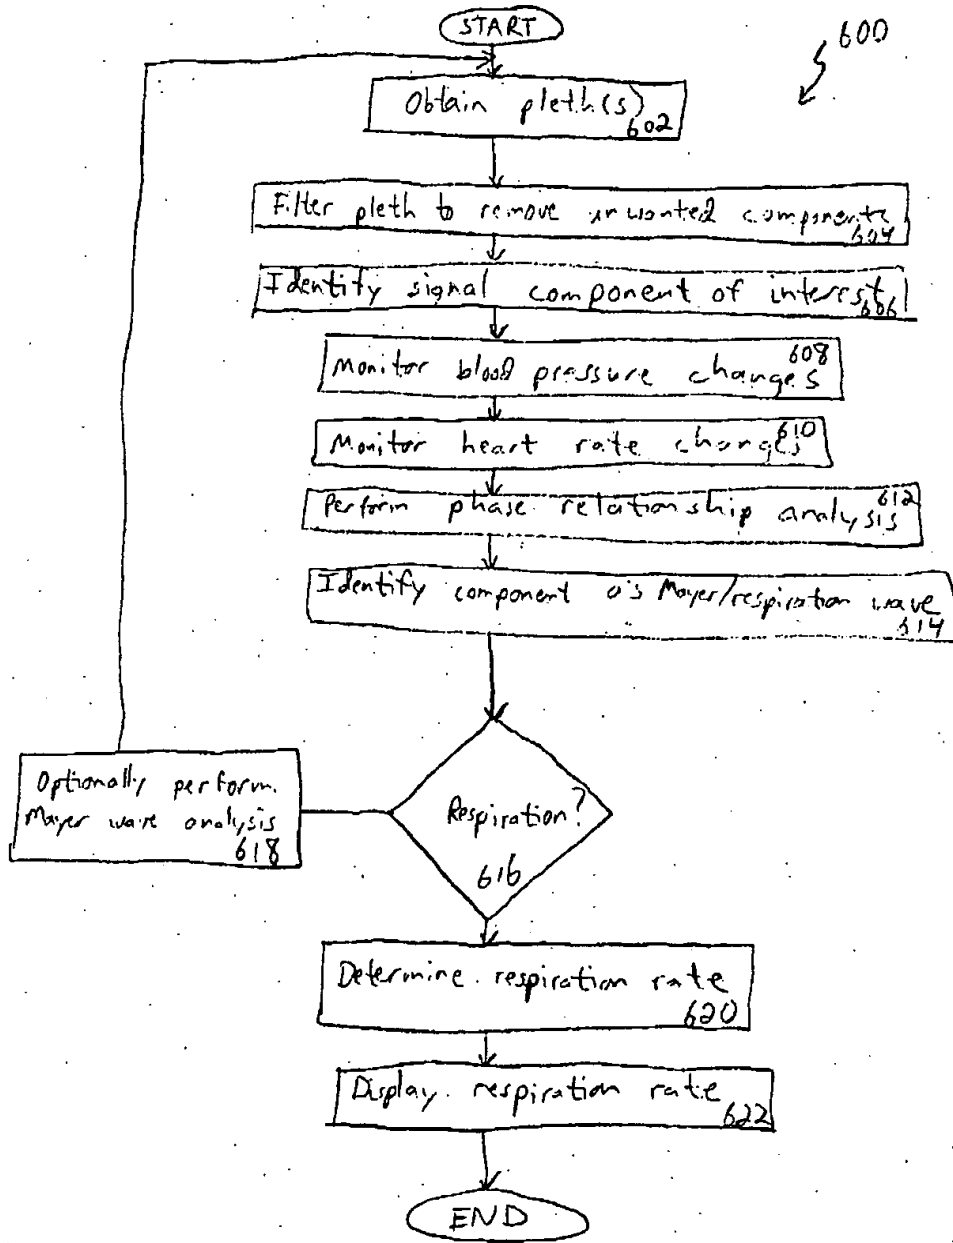 START
600
Obtain pleth(s)
602
Filter pleth to remove unwanted components
604
Identify signal component of interest
606
Monitor blood pressure changes
608
Monitor heart rate changes
610
Perform phase relationship analysis
612
Identify component as Mayer/respiration wave
614
Respiration?
616
Optionally perform
Mayer wave analysis
618
Determine respiration rate
620
Display respiration rate
622
END